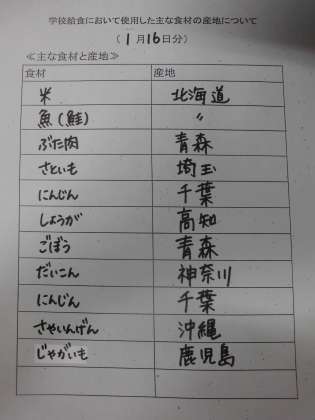 学校給食において使用した主な食材の産地について
(1月16日分)
≪主な食材と産地≫
食材 産地
米 北海道
魚(鮭) 〃
ぶた肉 青森
さといも 埼玉
にんじん 千葉
しょうが 高知
ごぼう 青森
だいこん 神奈川
にんじん 千葉
さやいんげん 沖縄
じゃがいも 鹿児島